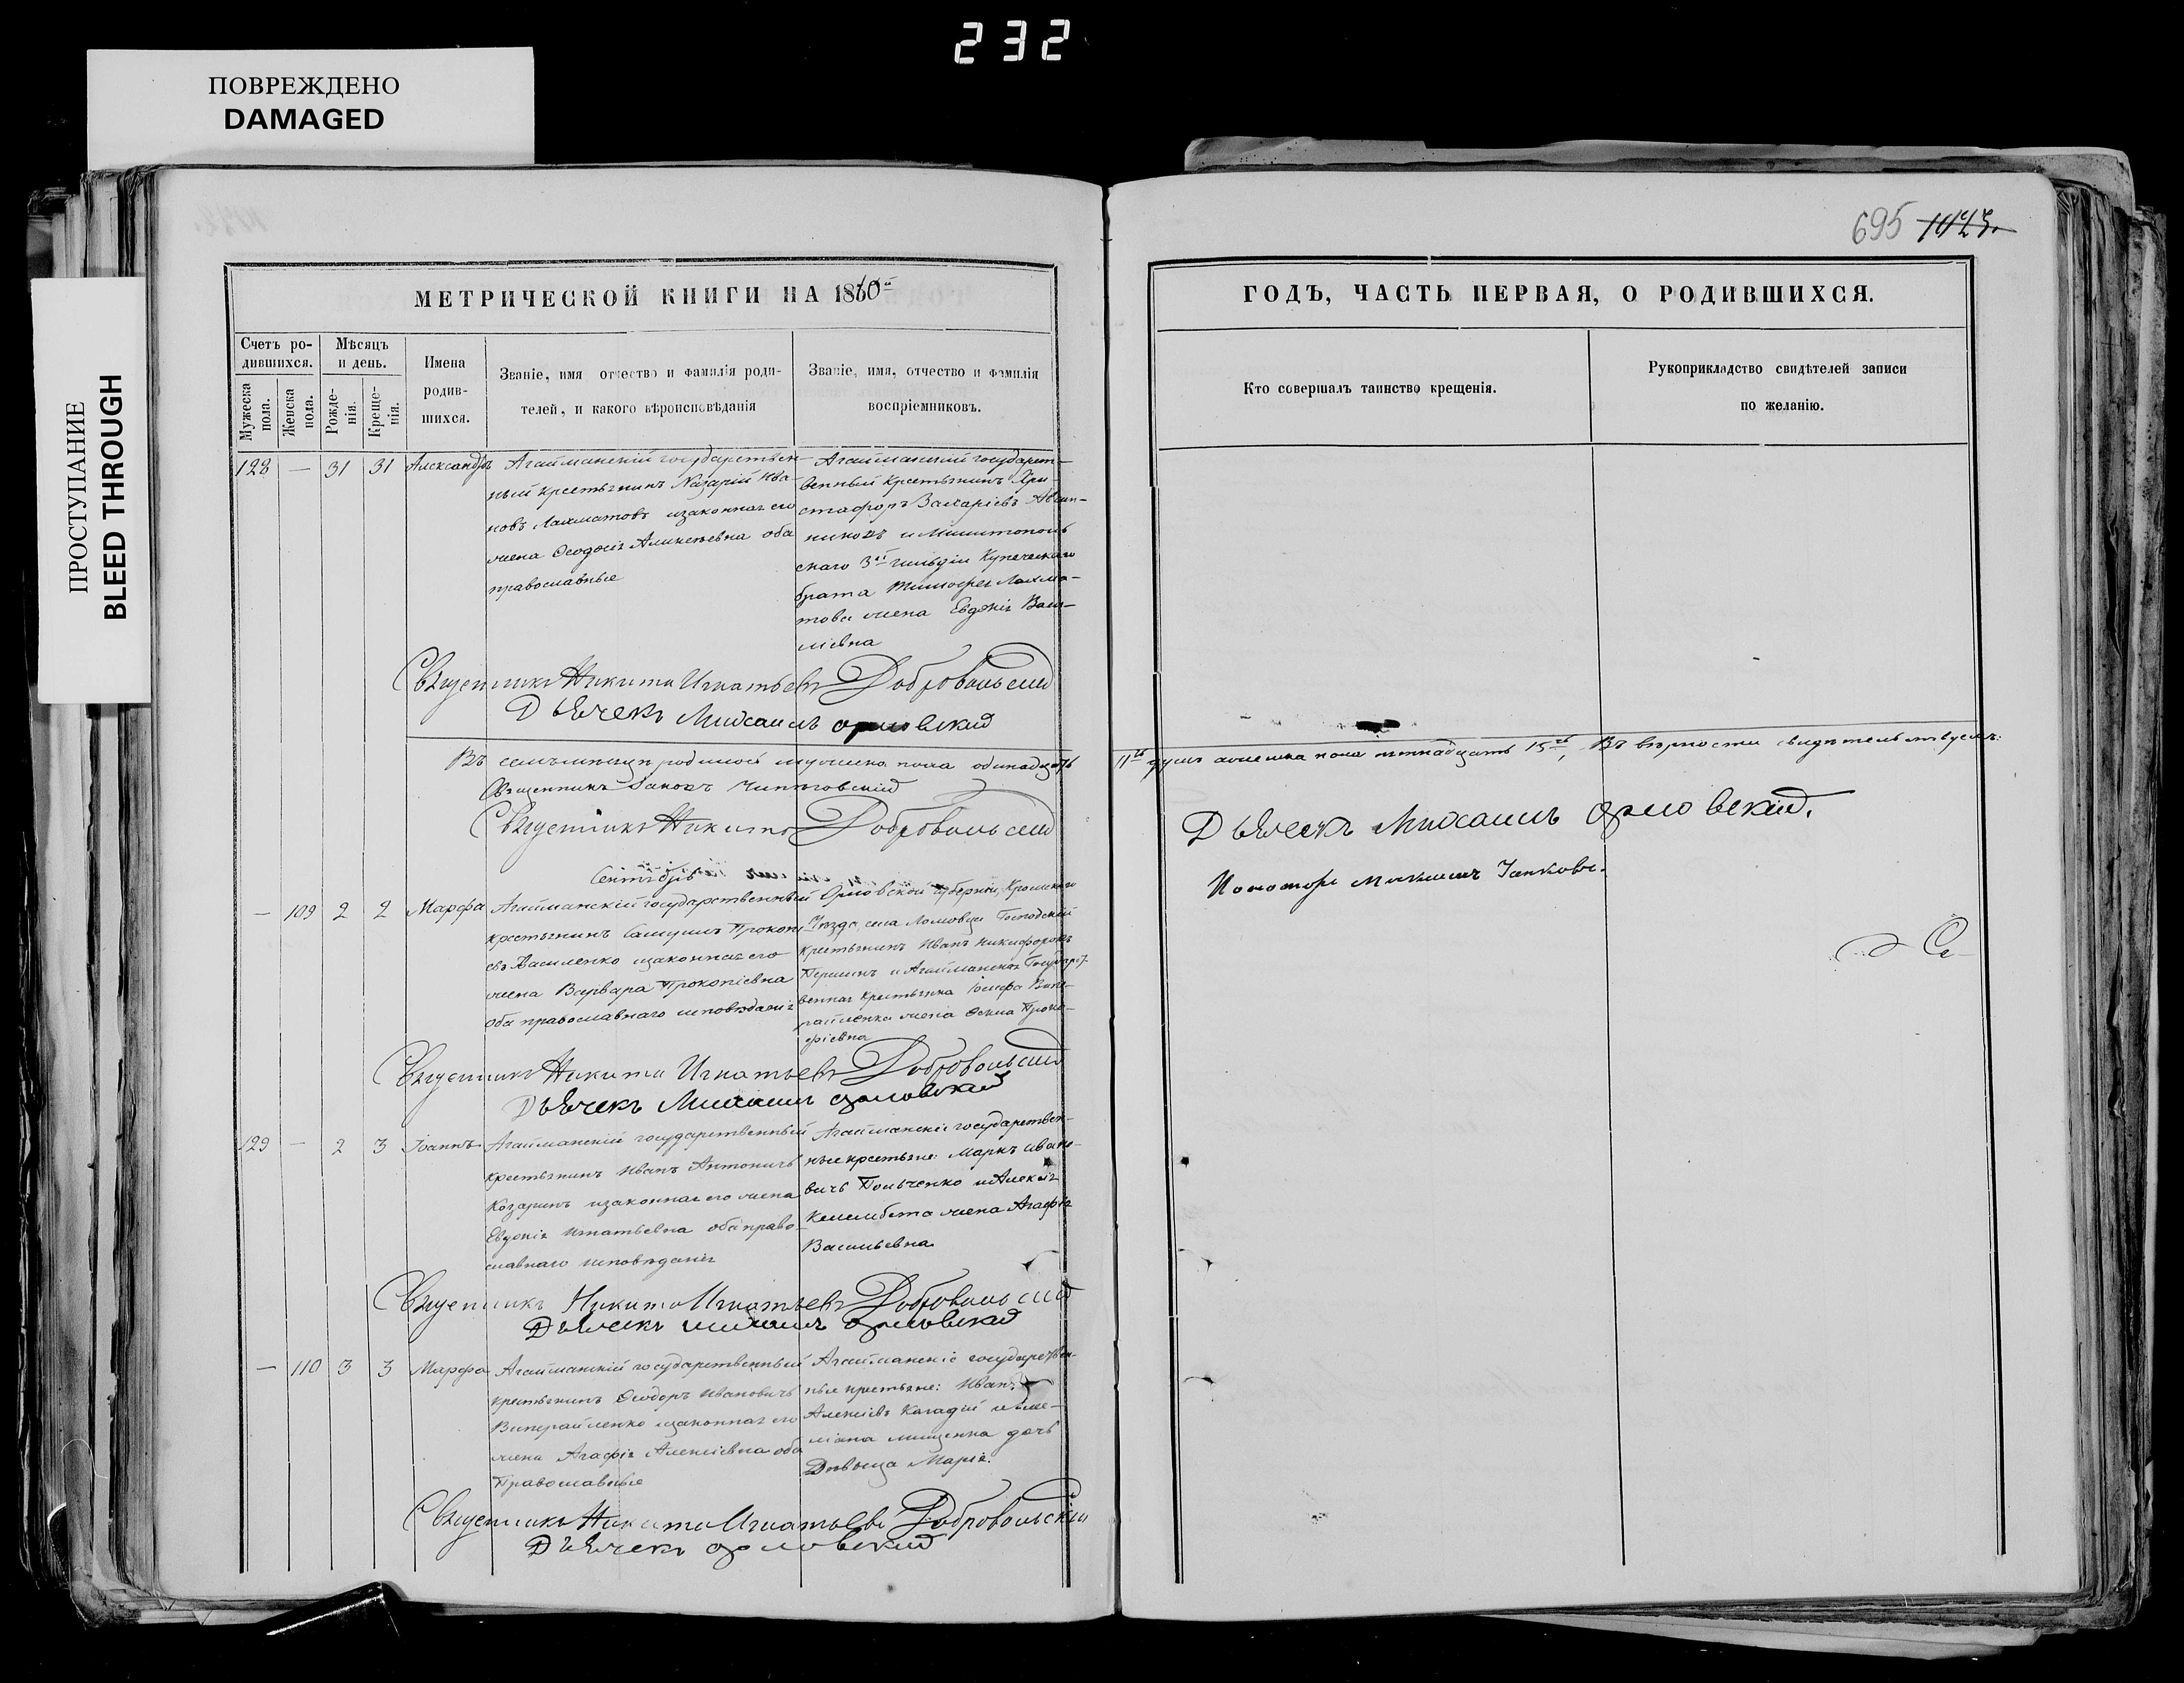 232
ПОВРЕЖДЕНО
DAMAGED
ПРОСТУПАНИЕ
BLEED THROUGH
695 1023.
МЕТРИЧЕСКОЙ КНИГИ НА 1860й
Счетъ ро-
дившихся.
Мужеска
пола.
Женска
пола.
Мѣсяцъ
и день.
Рожде-
нія.
Креще-
нія.
Имена
родив-
шихся.
Званіе, имя отчество и фамилія роди-
телей, и какого вѣроисповѣданія
Званіе, имя, отчество и фамилія
воспріемниковъ.
128 — 31 31 Александръ
Агайманскій государствен-
ный крестьянинъ Назарій Ива-
новъ Лахматовъ изаконная его
жена Ѳеодосія Алексѣевна оба
православные
Агайманскій государст-
венный крестьянинъ Хри-
стафоръ Захаріевъ
скаго 3й гильдіи Купеческаго
брата Тимофея Лахма-
това жена Евдокія Васи-
ліевна
Священникъ Никита Игнатьевъ Добровольскій
Дьячекъ Михаилъ Орловскій
Въ семъ мѣсяцѣ родилось мужеска пола одинадцать
Священникъ
Священникъ Никита Добровольскій
Сентябрь
— 109 2 2 Марфа
Агайманскій государственный
крестьянинъ Самуилъ Прокопі-
евъ Василенко изаконная его
жена Варвара Прокопіевна
оба православнаго исповѣданія
Орловской губерніи, Кромскаго
Уѣзда, села Ломовца Господскій
крестьянинъ Иванъ Никифоровъ
Першинъ и Агайманскаго Государст-
веннаго крестьянина Іосифа
жена Ѳекла Проко-
фіевна
Священникъ Никита Игнатьевъ Добровольскій
Дьячекъ Михаилъ Орловскій
129 — 2 3 Іоаннъ
Агайманскій государственный
крестьянинъ Иванъ Антоничъ
Козаринъ изаконная его жена
Евдокія Игнатьевна оба право-
славнаго исповѣданія
Агайманскіе государствен-
ные крестьяне: Маркъ Ивано-
вичъ Польченко и Алексѣя
жена Агафія
Васильевна
Священникъ Никита Игнатьевъ Добровольскій
Дьячекъ Михаилъ Орловскій
— 110 3 3 Марфа
Агайманскій государственный
крестьянинъ Ѳеодоръ Ивановичъ
изаконная его
жена Агафія Алексіевна оба
Православные
Агайманскіе государствен-
ные крестьяне: Иванъ
Алексіевъ Кагадій и Еме-
ліана Мищенка дочь
Дѣвица Марія.
Священникъ Никита Игнатьевъ Добровольскій
Дьячекъ Орловскій
ГОДЪ, ЧАСТЬ ПЕРВАЯ, О РОДИВШИХСЯ.
Кто совершалъ таинство крещенія.
Рукоприкладство свидѣтелей записи
по желанію.
11ть душъ женска пола пятнадцать 15ть, Въ вѣрности свидѣтельствуемъ:
Дьячекъ Михаилъ Орловскій.
Пономарь